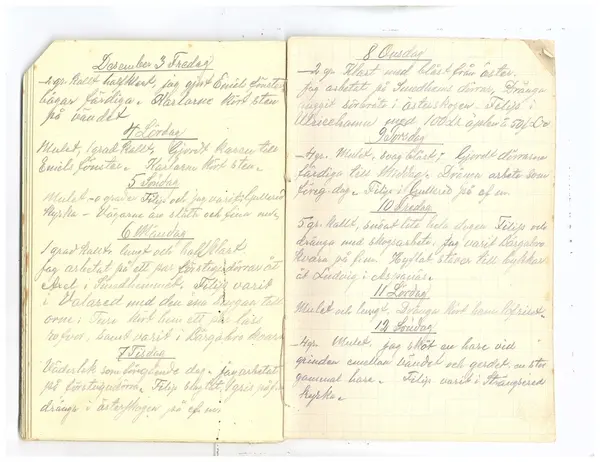 December 3 Fredag
-2 gr. Kallt halvklart, jag gjort Emils fönster
bågar färdiga. Karlarne kört sten
på vändet
4 Lördag
Mulet, 1 grad Kallt, Gjordt karm till
Emils fönster. Karlarne kört sten.
5 Söndag
Mulet -0 grader Filip och jag varit i Gullered
Kyrka - Vägarne äro släta och fina nu.
6 Måndag
1 grad Kallt, lungt och halfklart
Jag arbetat på ett par förstugudörrar åt
Axel i Sundhemmet, Filip varit
i Valared med den ena drängen till
kört hem ett par lass
samt varit i Lärgabro kvarn
7 Tisdag
Väderlek som föregående dag. jag arbetat
på förstugudörr. Filip slagtat 1 gris på f.m
drängs i österskogen på e.m
8 Onsdag
-2 gr. Klart med blåst från öster.
Jag arbetat på Sundhems dörrar, Dränga
huggit i österskogen. Filip i
Ulricehamn med 100 lit äplen à 50/
9 Torsdag
4 gr. Mulet, svag blåst; Gjordt dörrarne
färdiga till Middag. Dränga arbete som
föreg. dag. Filip i Gullered på e.m.
10 Fredag
5 gr. Kallt, snöat lite hela dagen Filip och
dränga med skogsarbete, jag varit Lärgabro
kvarn på f.m. Hyflat stäver till
åt Ludvig i
11 Lördag
Mulet och lungt, Dränga kört hem
12 Söndag
4 gr. Mulet, jag sköt en hare vid
grinden emellan vändet och gerdet, en stor
gammal hare. Filip varit i Strängsered
kyrka.